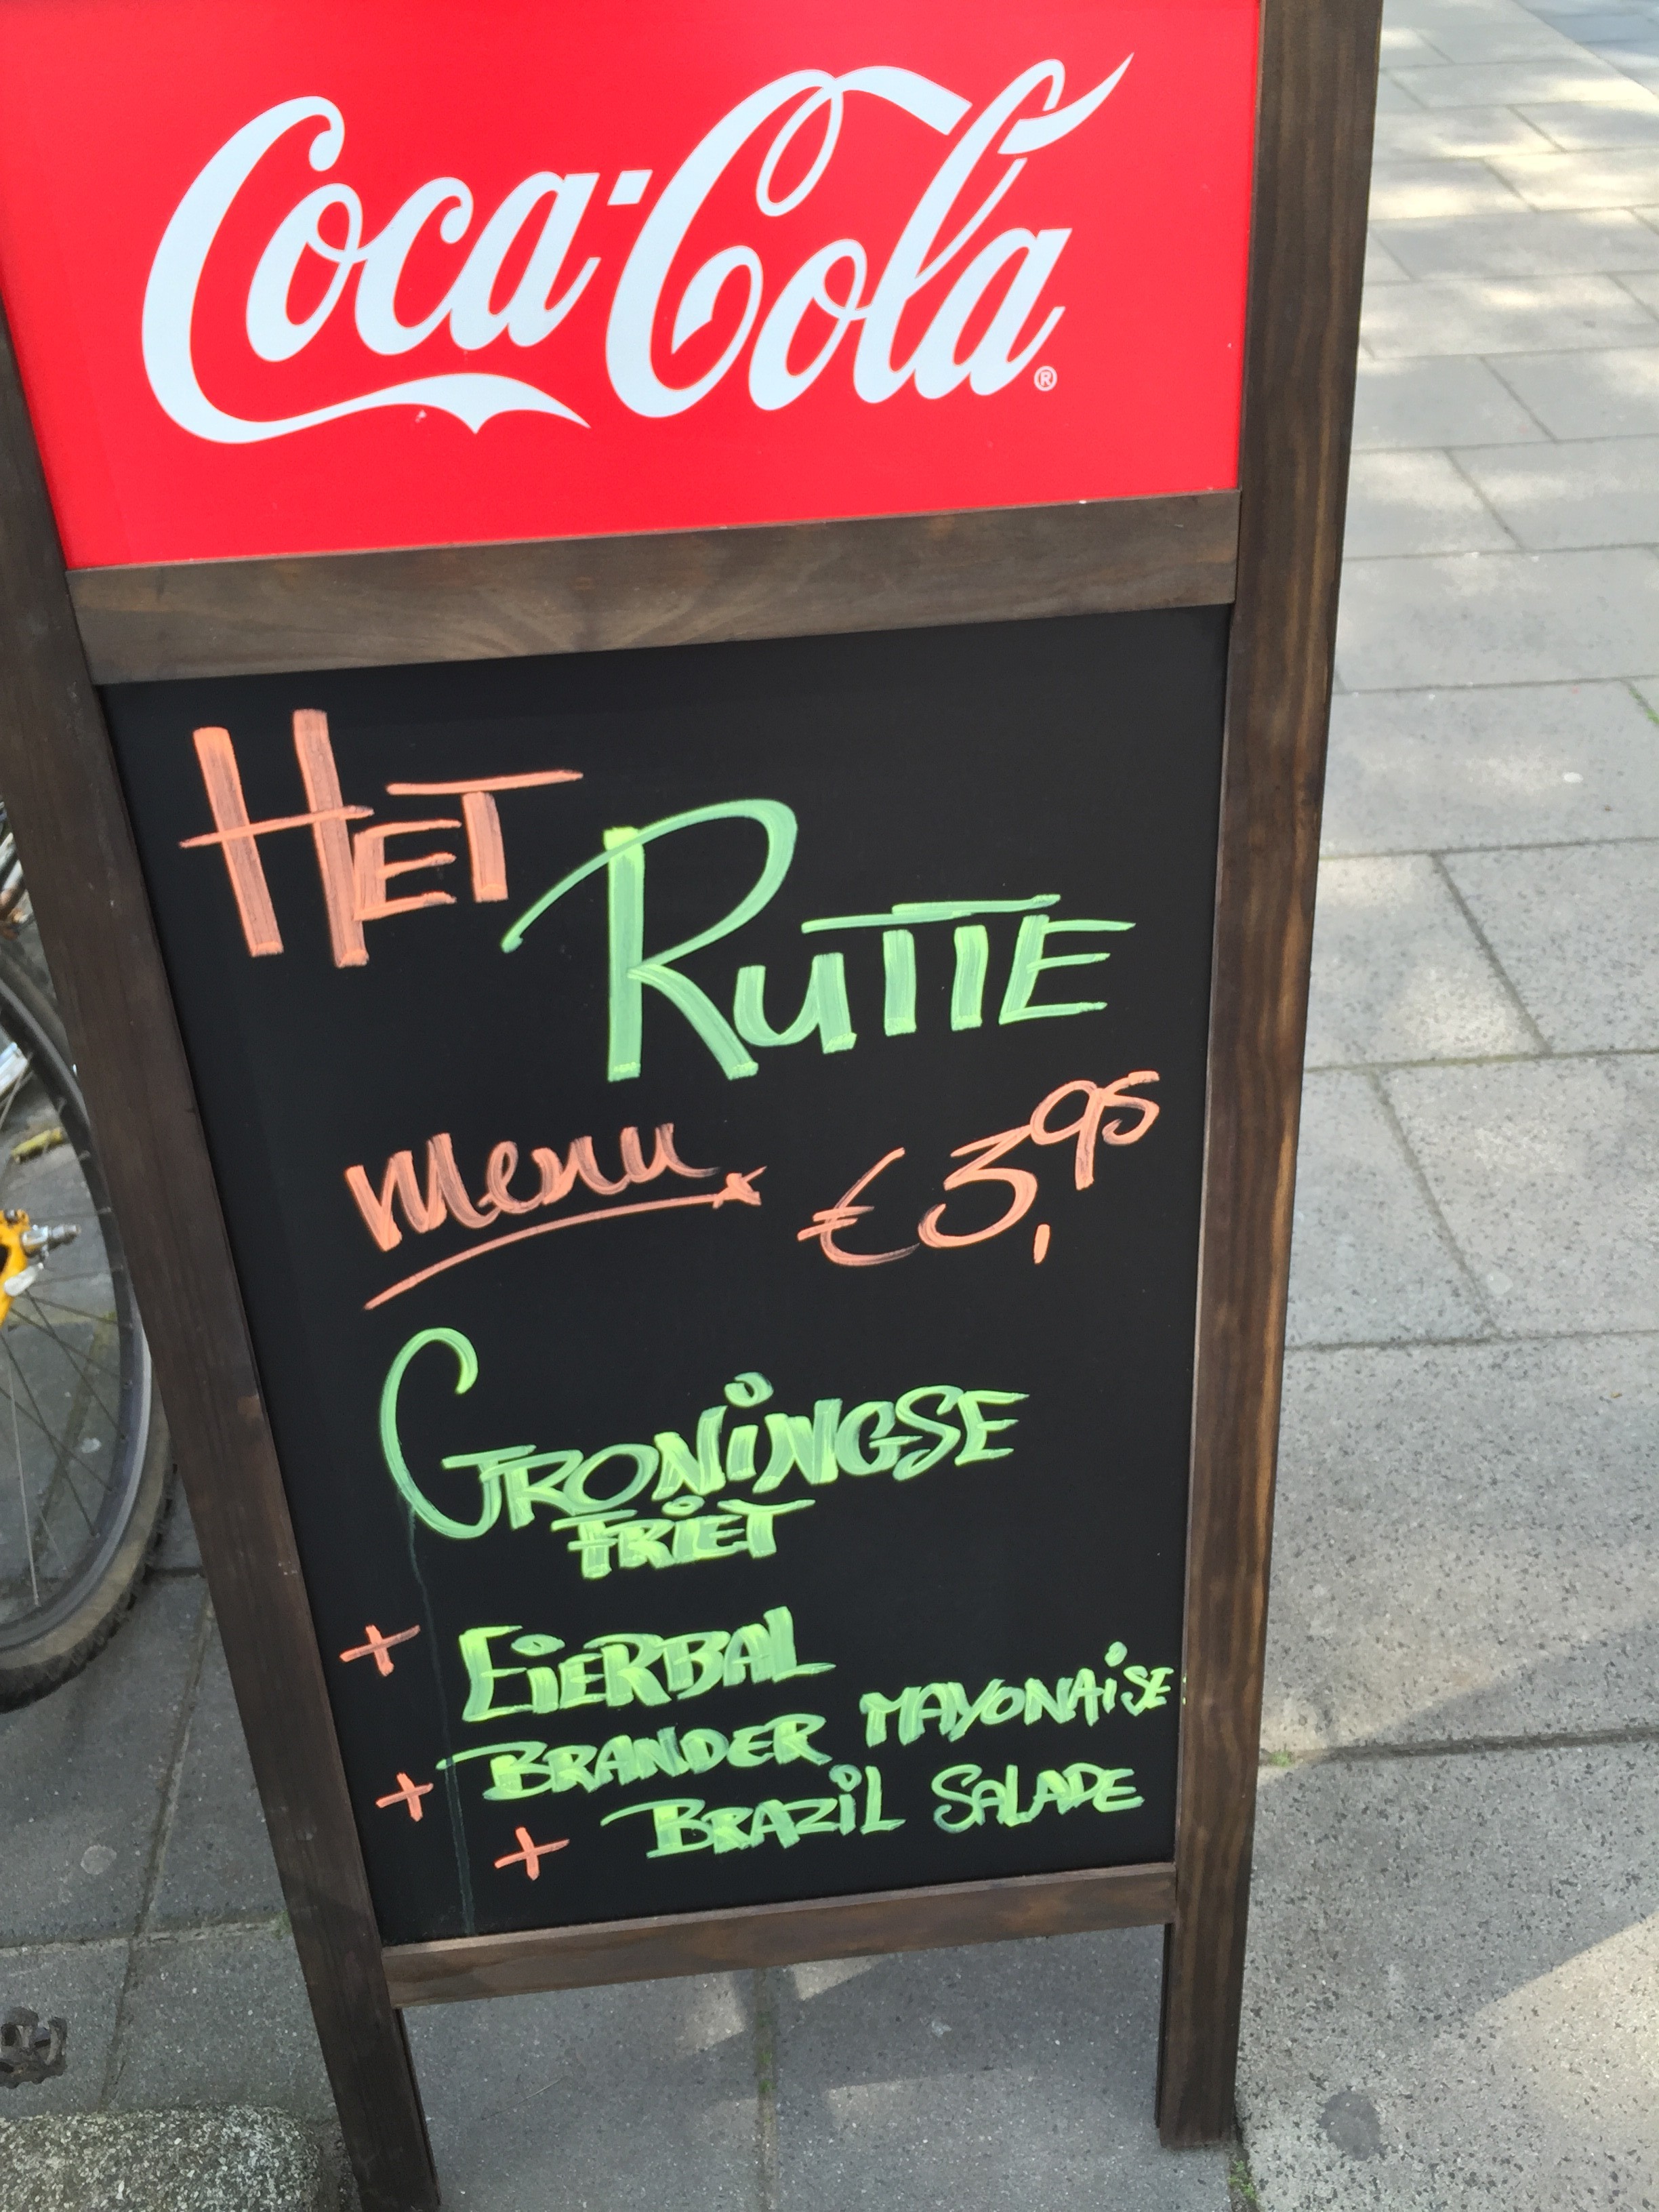 Coca-Cola®
HET
RUTTE
menu
€3,95
GRONINGSE
FRIET
+ EiERBAL
+ BRANDER MAYONAiSE
+ BRAZiL SALADE